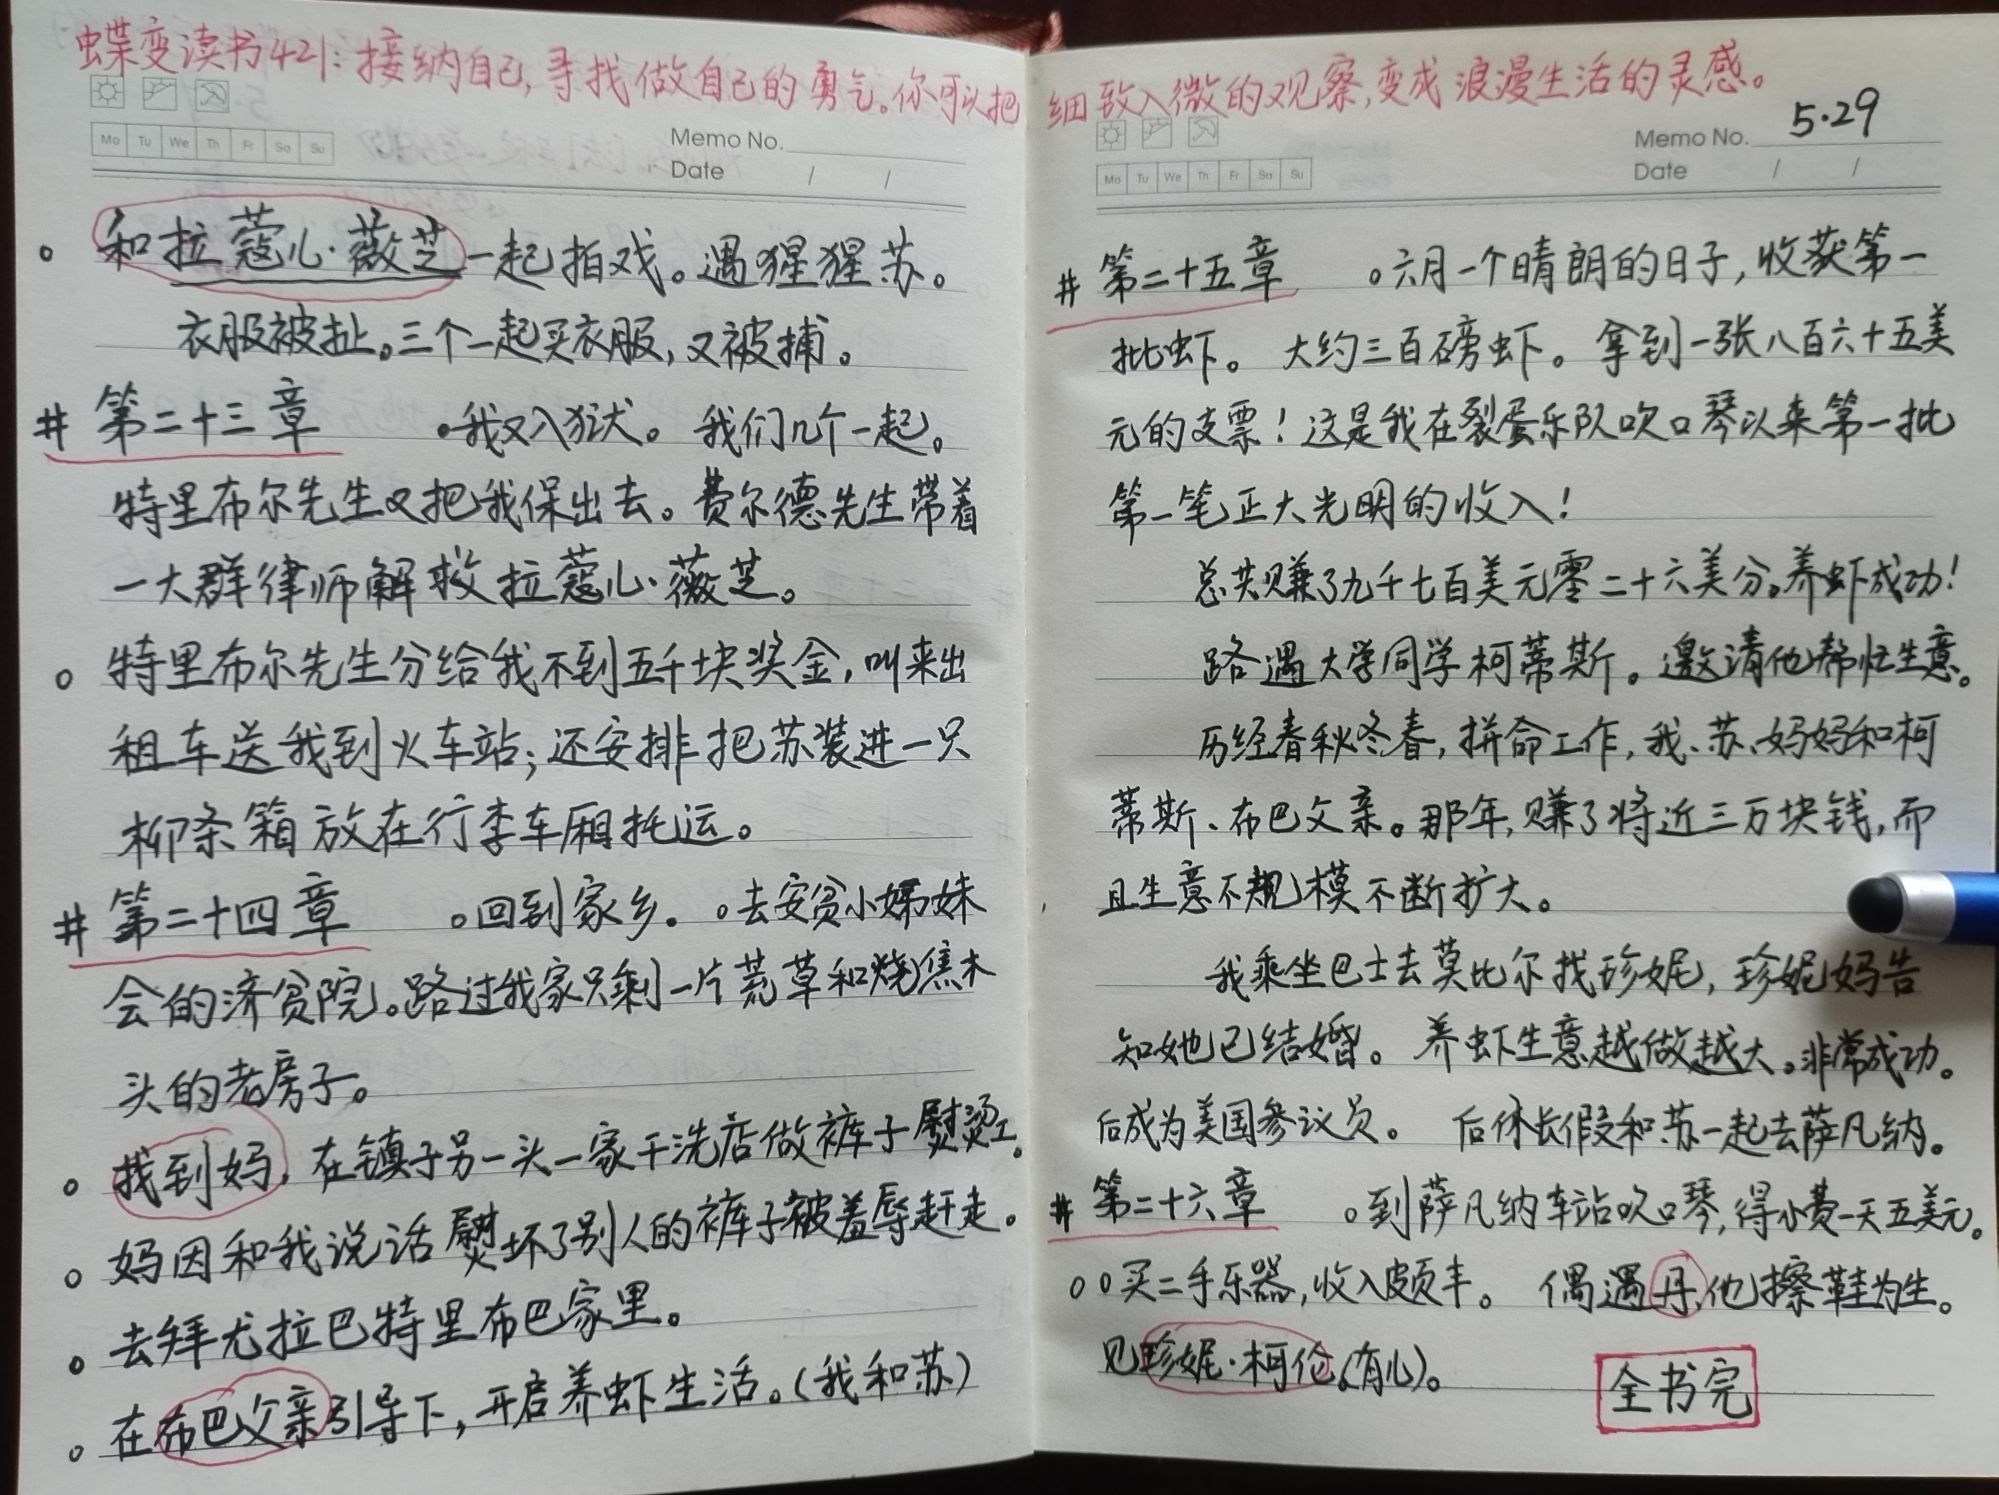 蝶变读书421：接纳自己，寻找做自己的勇气。你可以把
Mo Tu We Th Fr Sa Su
Memo No.
Date / /
。和拉蔻儿·薇芝一起拍戏。遇猩猩苏。
衣服被扯。三个一起买衣服，又被捕。
# 第二十三章 。我又入狱。我们几个一起。
特里布尔先生又把我保出去。费尔德先生带着
一大群律师解救拉蔻儿·薇芝。
。特里布尔先生分给我不到五千块奖金，叫来出
租车送我到火车站；还安排把苏装进一只
柳条箱放在行李车厢托运。
# 第二十四章 。回到家乡。。去安贫小姊妹
会的济贫院。路过我家只剩一片荒草和烧焦木
头的老房子。
。找到妈，在镇子另一头一家干洗店做裤子熨烫工。
。妈因和我说话熨坏了别人的裤子被羞辱赶走。
。去拜尤拉巴特里布巴家里。
。在布巴父亲引导下，开启养虾生活。（我和苏）
细致入微的观察，变成浪漫生活的灵感。
Mo Tu We Th Fr Sa Su
5.29
Memo No.
Date / /
# 第二十五章 。六月一个晴朗的日子，收获第一
批虾。大约三百磅虾。拿到一张八百六十五美
元的支票！这是我在裂蛋乐队吹口琴以来第一批
第一笔正大光明的收入！
总共赚了九千七百美元零二十六美分。养虾成功！
路遇大学同学柯蒂斯。邀请他帮忙生意。
历经春秋冬春，拼命工作，我、苏、妈妈和柯
蒂斯、布巴父亲。那年，赚了将近三万块钱，而
且生意不规模不断扩大。
我乘坐巴士去莫比尔找珍妮，珍妮妈告
知她已结婚。养虾生意越做越大。非常成功。
后成为美国参议员。后休长假和苏一起去萨凡纳。
# 第二十六章 。到萨凡纳车站吹口琴，得小费一天五美元。
。。买二手乐器，收入颇丰。偶遇丹，他擦鞋为生。
见珍妮·柯伦。（有儿）。
全书完